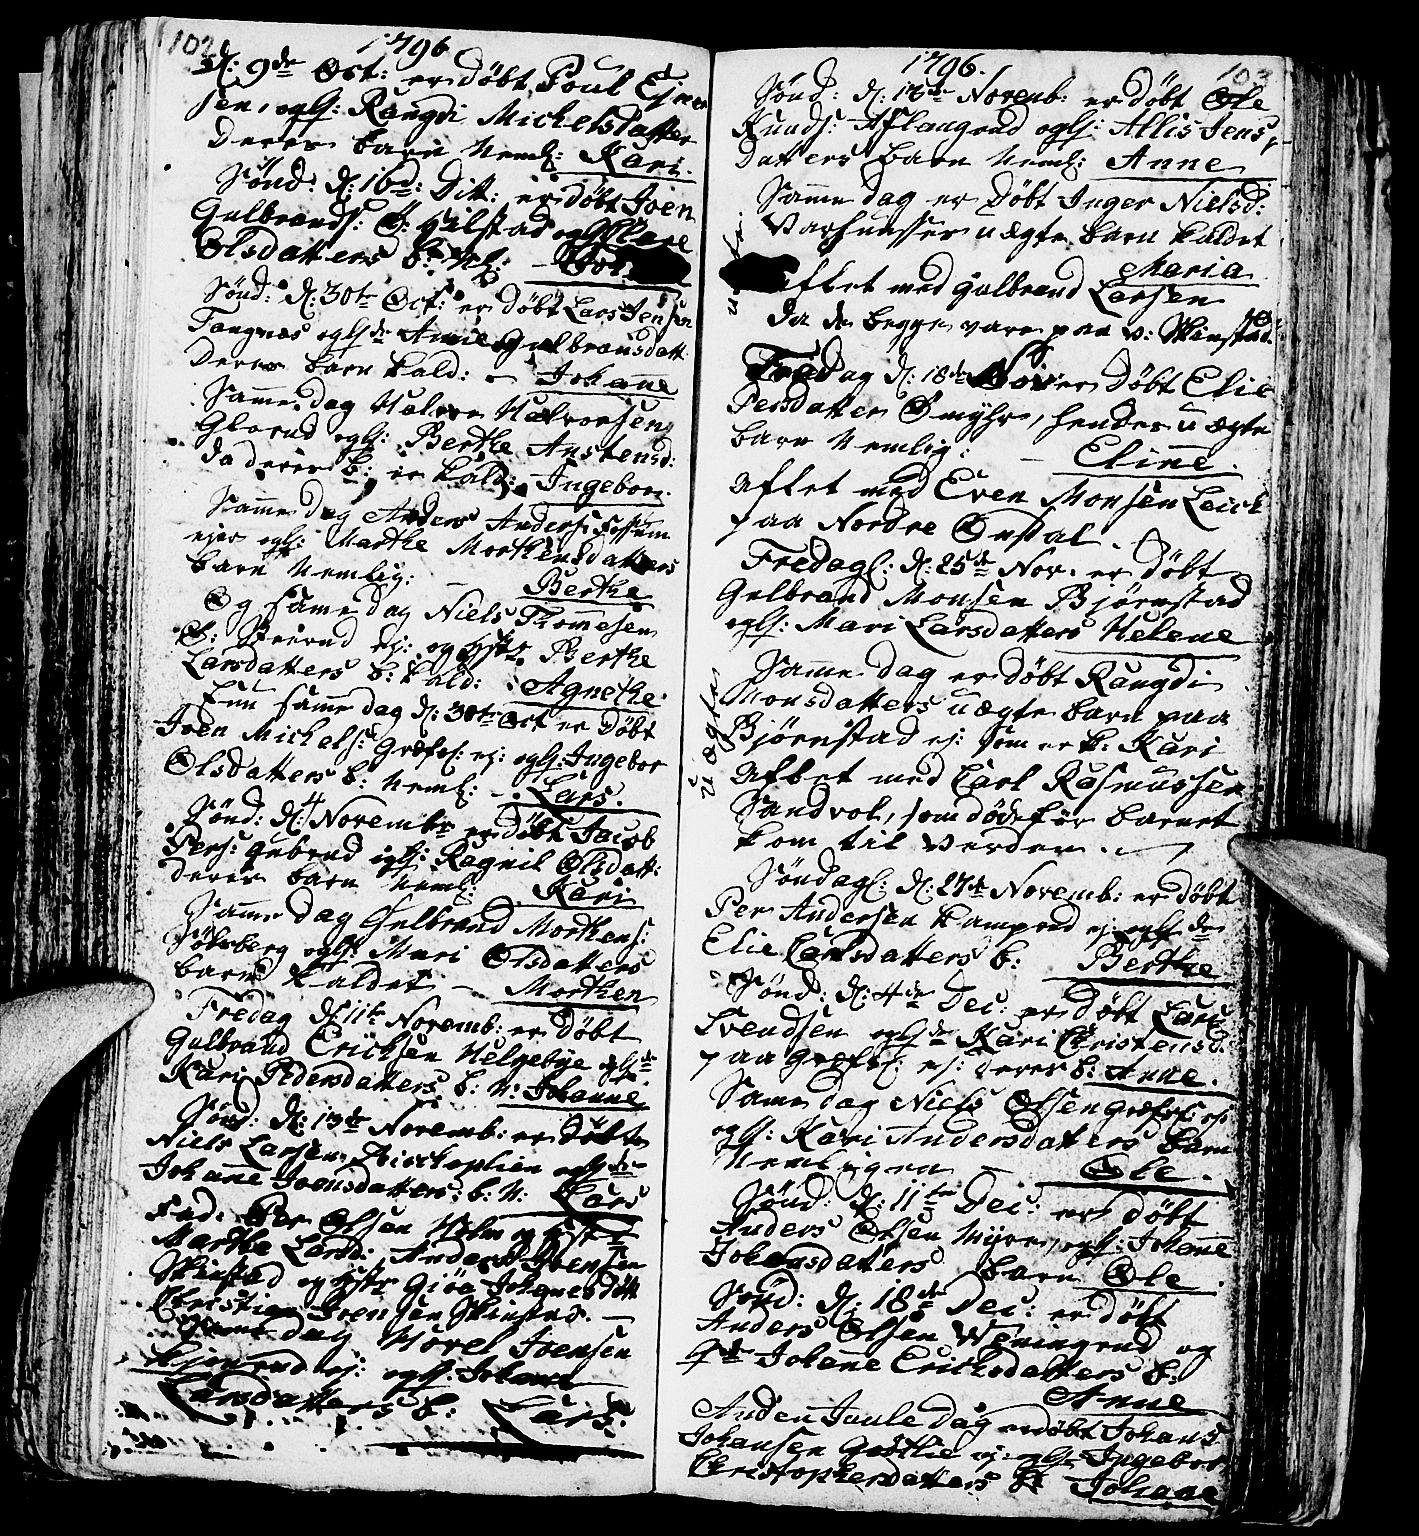 102
1796
d: 9de Oct: er døbt Poul Ejner
sen, ogH: Rangdi Michelsdatter
deres barn Neml: Kari.
Sønd: d: 16d: Dit: er døbt Joen
Gulbrands: G: Gilstad og
Olsdatters b: Nl:
Sønd: d: 30te Oct: er døbt Lars Jensen
Tangnæs ogHde Anne Gulbransdatt:
deres barn kald: - Johanne
Samme dag Halvor Halvorsen
Glorud ogH: Berthe Anstensd:
da deres b: er kald: Ingebor.
Samme dag Anders Anders: Fossum
ejer ogH: Marthe Morthensdatters
barn Nemlig: - Berthe
Og samme dag Niels Thommesen
ej: og Hst: Berthe
Larsdatters b: kald: Agnethe.
Enu samme dag d: 30te Oct er døbt
Joen Michels: Græfs: ej: ogH: Ingebor
Olsdatters b: Neml: - Lars.
Sønd: d: 4 Novembr er døbt Jacob
Pers: Gubrud ogH: Ragnil Olsdatt:
deres barn Neml: Kari
Samme dag Gulbrand Morthens:
ogH: Mari Olsdatters
barn kaldet - Morthen
Fredag d: 11te Novemb: er døbt
Gulbrand Ericksen Helgebye ogHde
Kari Pedersdatters b: N: Johanne
Sønd: d: 13de Novemb: er døbte
Niels Larsen ogHde
Johanne Joensdatters b: N: Lars
Fad: Per Olsen Holm og Hst:
Marthe Larsd: Anders Joensen
Skinstad og Hstr Giøa Johannesdött
Christian Joensen Skinstad. -
Samme dag Novel Joensen
ej: ogH: Johanne
Larsdatters b: Lars.
1796.
103
Sønd: d: 13de Novemb: er døbt Ole
Knuds: Aslangrud ogH: Allis Jens
datters barn Neml: Anne
Samme dag er døbt Inger Nielsd:
uægte barn kaldet
Maria
aflet med Gulbrand Larsen
da de begge vare paa v: Skinstad.
Fredag d: 18de Nov: er døbt Elie
Persdatter Ø myhr, hendes uægte
barn Nemlig: - Eline.
aflet med Even Monsen Leick
paa Nordre Onstal.
Fredagl: d: 25de Nov: er døbt
Gulbrand Monsen Bjørnstad
ogH: Mari Larsdatters Helene
Samme dag er døbt Rangdi
Monsdatters uægte barn paa
Bjørnstad ej: som er k: Kari
uægte
aflet med Carl Rasmussen
Sandvol, som døde før barnet
kom til Verden.
Søndagl: d: 27de Novemb: er døbt
Per Andersen Kamprud ej: ogHde
Elie Carlsdatters b: Berthe
Sønd: d: 4de Dec: er døbt Lars
Svendsen ogHde Kari Christensd:
paa Græfs: ej: deres b: Anne.
Samme dag Niels Olsen Græfs: ej:
ogH: Kari Andersdatters barn
Nemligen - Ole.
Sønd: d: 11te Dec: er døbt
Anders Olsen Myren, ogH: Johanne
Johansdatters barn Ole.
Sønd: d: 18de Dec: er døbt
Anders Olsen Weningrud og
Hde Johanne Ericksdatters b:
Anne
Anden Juule dag er døbt Johans
Johansen Gudtlie ej: ogH: Ingebor
Christophersdatters b: Johanne